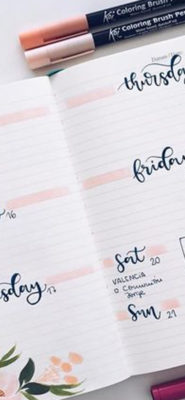 Coloring Brush Pen
Coloring Brush Pen
thursday
friday
16
sday 17
sat 20
VALENCIA
sun 21